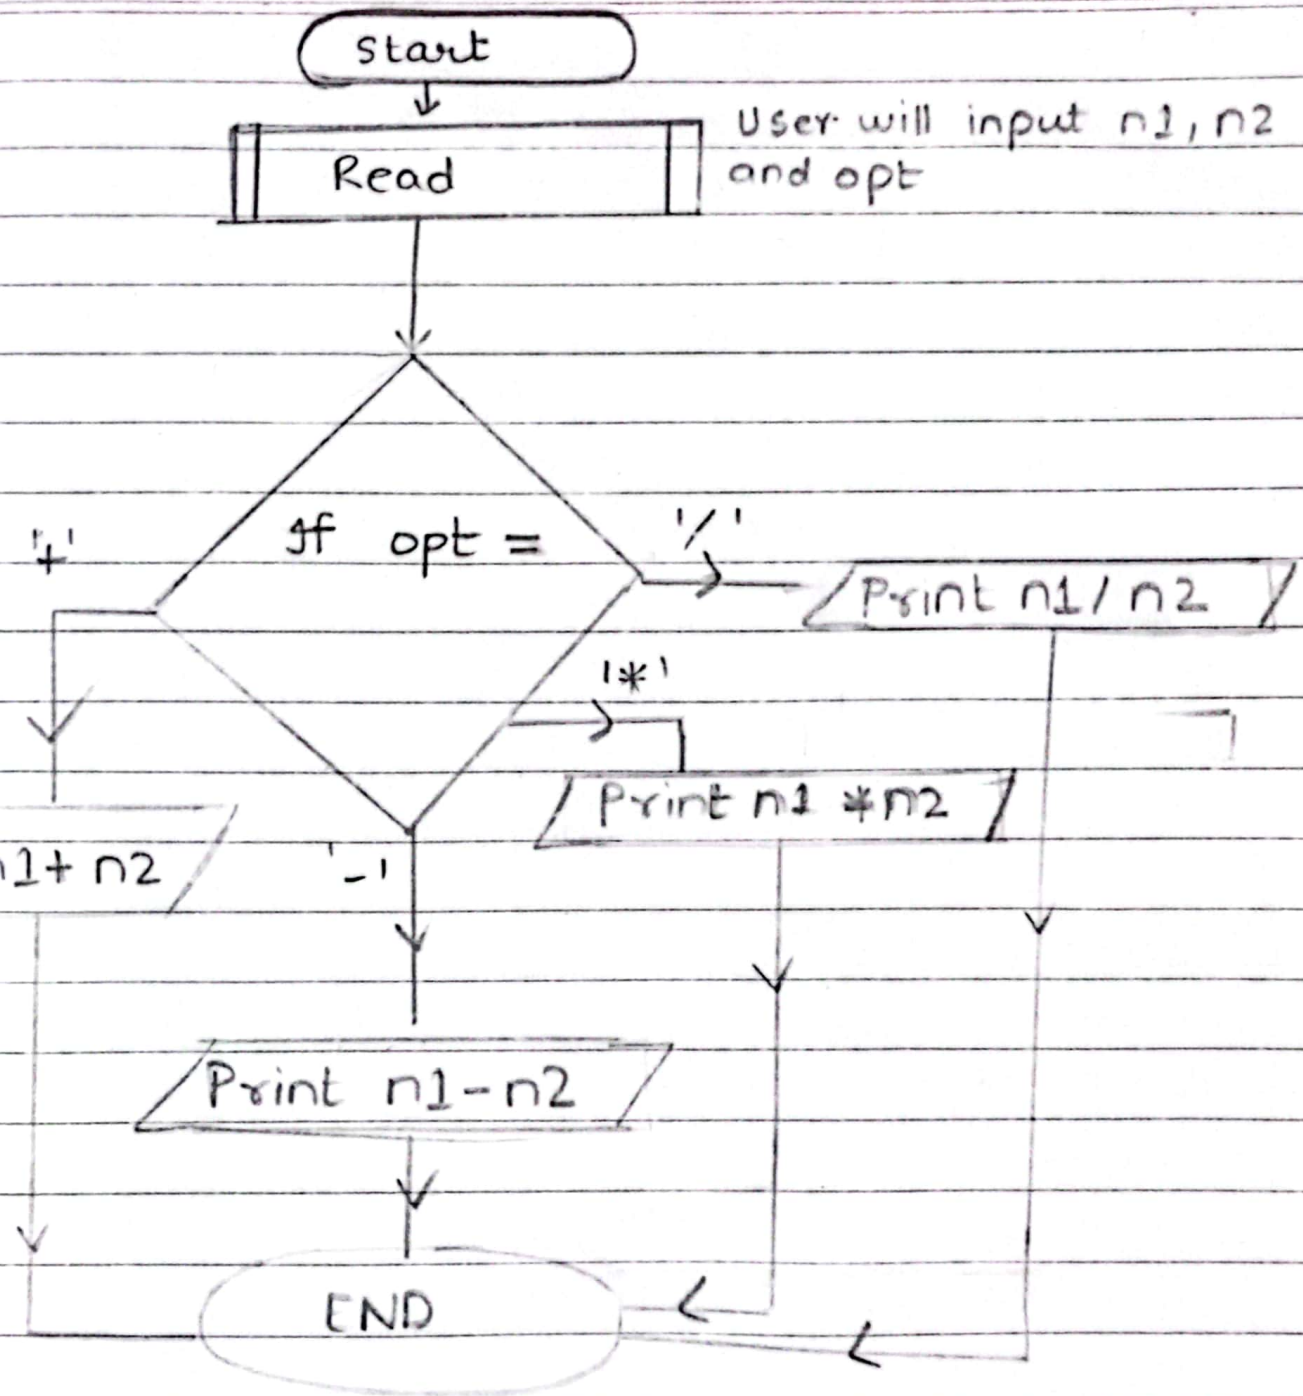 Start
Read
User will input n1, n2
and opt
If opt =
'+'
'/'
Print n1/n2
'*'
Print n1 *n2
n1+ n2
'-'
Print n1-n2
END